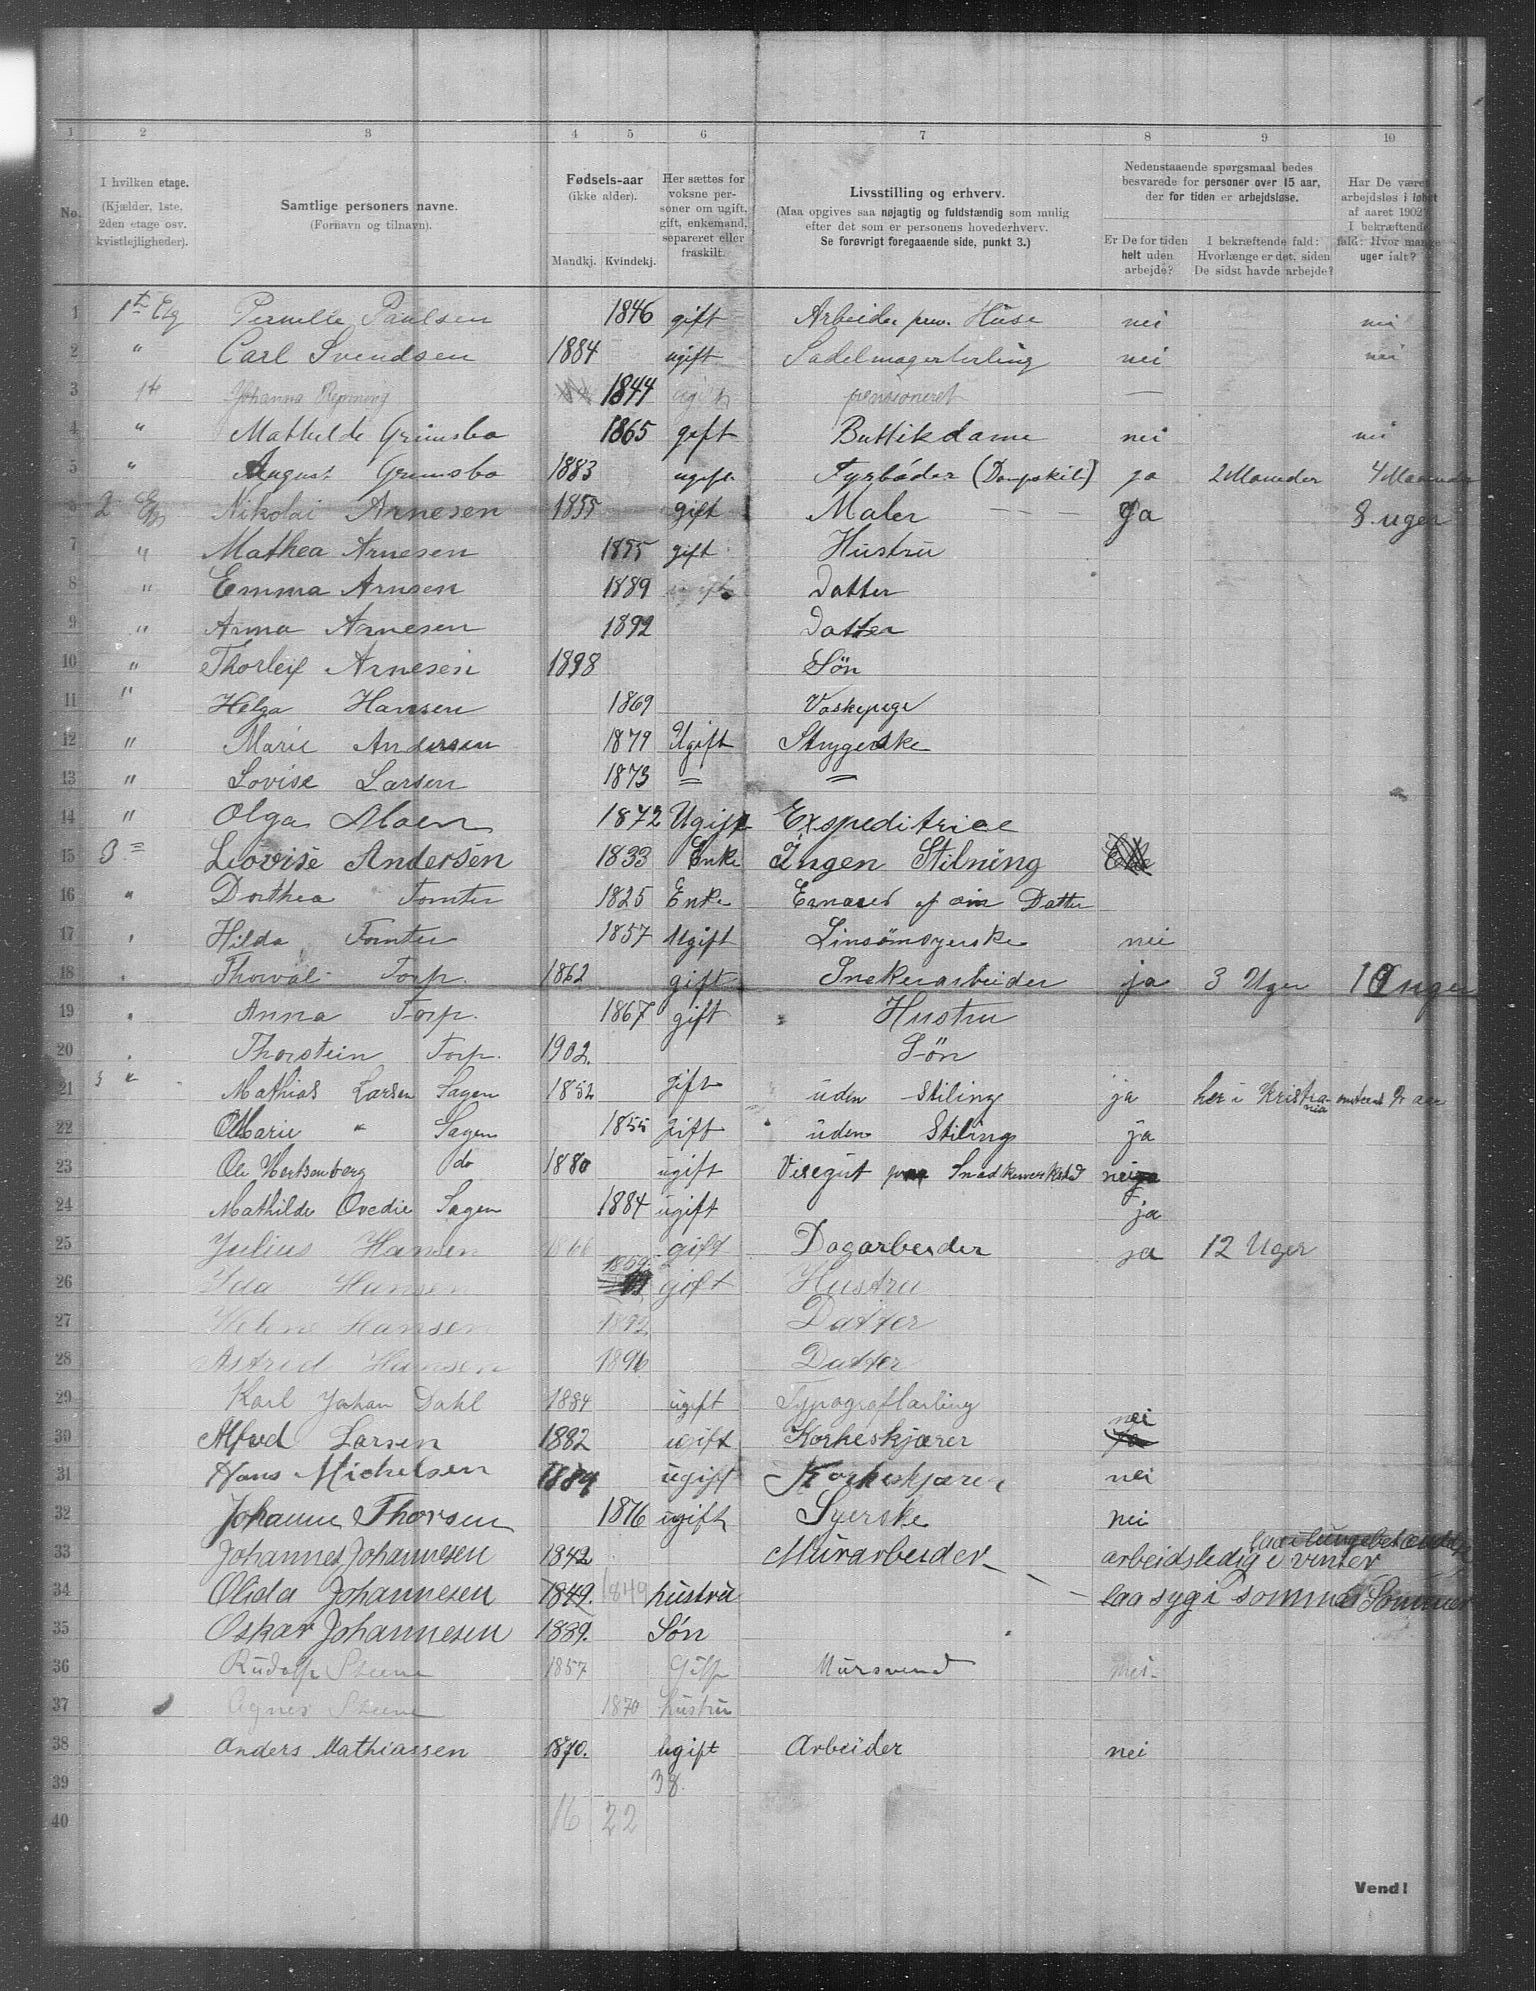 1 2 3 4 5 6 7 8 9 10
No.
I hvilken etage.
(Kjælder, 1ste, 2den etage osv. kvistlejligheder).
Samtlige personers navne.
(Fornavn og tilnavn).
Fødsels-aar
(ikke alder).
Mandkj. Kvindekj.
Her sættes for voksne personer om ugift, gift, enkemand, separeret eller fraskilt.
Livsstilling og erhverv.
(Maa opgives saa nøjagtig og fuldstændig som mulig efter det som er personens hovederhverv.
Se forøvrigt foregaaende side, punkt 3.)
Nedenstaaende spørgsmaal bedes besvarede for personer over 15 aar, der for tiden er arbejdsløse.
Er De for tiden helt uden arbejde?
I bekræftende fald: Hvorlænge er det, siden De sidst havde arbejde?
Har De været arbejdsløs i løbet af aaret 1902? I bekræftende fald: Hvor mange uger ialt?
1 1ste Etg Pernelle Paulsen 1846 gift Arbeider priv. Huse nei nei
2 " Carl Svendsen 1884 ugift Sadelmagerlerling nei nei
3 1te Johanna 1844 ugift pensioneret —
4 " Mathilde Grimsbo 1865 gift Buttikdame nei nei
5 " August Grimsbo 1883 ugift Fyrbøder (Dampskib) ja 2 Maaneder 4 Maaneder
6 2 Etg Nikolai Arnesen 1855 gift Maler Ja 8 uger
7 " Mathea Arnesen 1855 gift Hustru
8 " Emma Arnesen 1889 ugift Datter
9 " Anna Arnesen 1892 Datter
10 " Thorleif Arnesen 1898 Søn
11 " Helga Hansen 1869 Vaskepige
12 " Marie Andersen 1879 Ugift Strygerske
13 " Lovise Larsen 1873 = =
14 " Olga Moen 1872 Ugift Expeditrice
15 3 = Lovise Andersen 1833 Enke Ingen Stilning
16 " Dorthea Tomter 1825 Enke Ernæres af sin Datter
17 " Hilda Tomter 1857 Ugift Linsømsyerske nei
18 " Thorval Torp. 1862 gift Snekerarbeider ja 3 Uger 10 uger
19 " Anna Torp. 1867 gift Hustru
20 " Thorstein Torp. 1902. Søn
21 3 " Mathias Larsen Sagen 1852 gift uden Stiling ja her i Kristiania omtrent ½ aar
22 Marie " Sagen 1855 gift uden Stiling ja
23 Ole Hertsenberg do 1880 ugift Visegut paa Snedkerverksted nei
24 Mathilde Ovedie Sagen 1884 ugift ja
25 Julius Hansen 1866 gift Dagarbeider ja 12 Uger
26 Ida Hansen 1859 gift Hustru
27 Helene Hansen 1892 Datter
28 Astrid Hansen 1896 Datter
29 Karl Johan Dahl 1884 ugift Typograflærling
30 Alfred Larsen 1882 ugift Korkeskjærer nei
31 Hans Michelsen 1884 ugift Korkeskjærer nei
32 Johanne Thorsen 1876 ugift Syerske nei
33 Johannes Johannesen 1842 Murarbeider arbeidsledig i vinter
34 Olida Johannesen 1849. 1849 hustru laa syg i sommer
35 Oskar Johannesen 1889. Søn
36 Rudolf Steene 1857 Gift Mursvend nei.
37 Agnes Steene 1870 hustru
38 Anders Mathiassen 1870. Ugift Arbeider nei
39 38.
40 16 22
Vend!